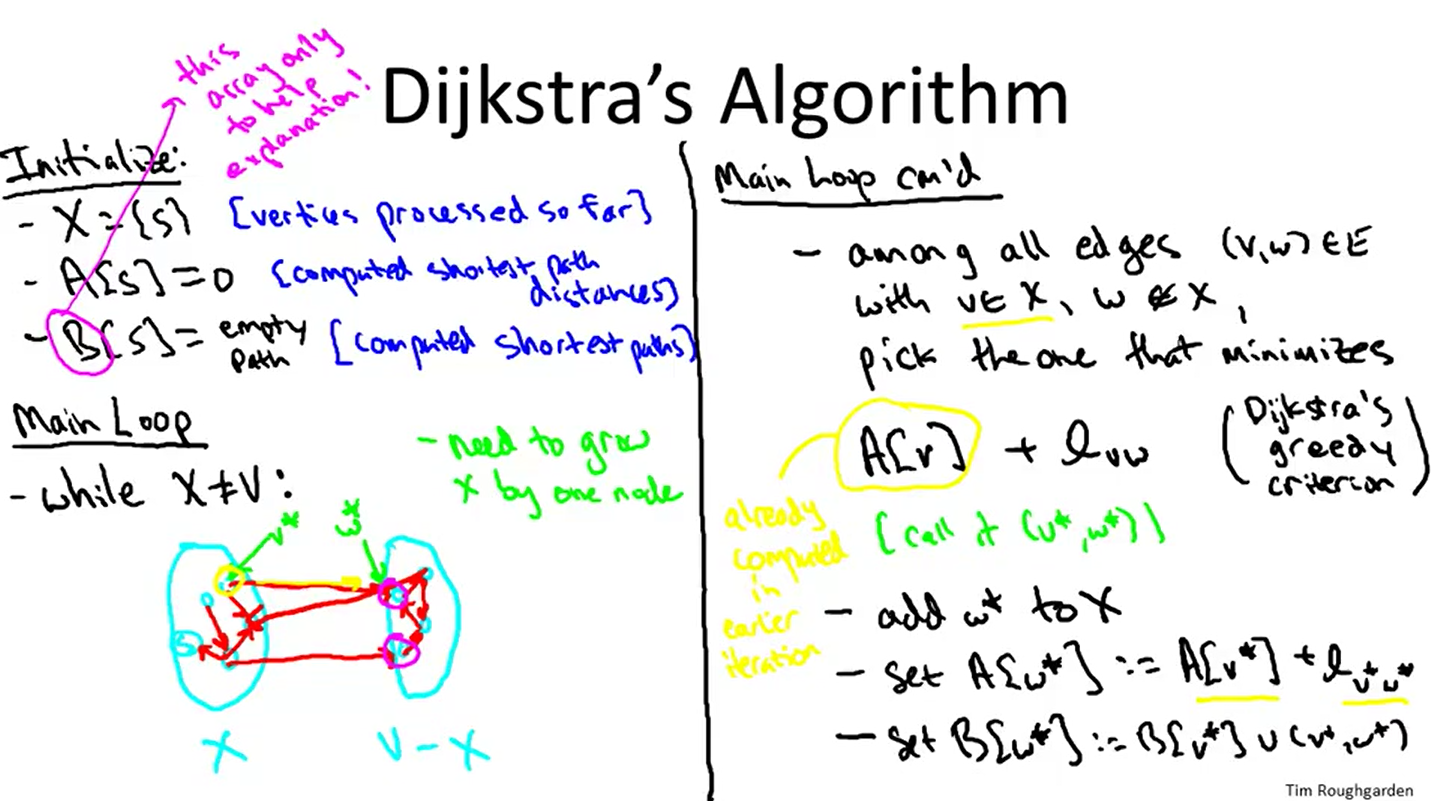 Dijkstra's Algorithm
this
array only
to help
explanation!
Initialize:
- X = {s} [vertices processed so far]
- A[s] = 0 [computed shortest path
distances]
- B[s] = empty
path [computed shortest paths]
Main Loop
- while X ≠ V:
- need to grow
X by one node
v*
w*
s
X
V - X
Main Loop con'd
- among all edges (v,w) ∈ E
with v ∈ X, w ∉ X,
pick the one that minimizes
A[v] + l_vw
(Dijkstra's
greedy
criterion)
already
computed
in
earlier
iteration
[call it (v*,w*)]
- add w* to X
- set A[w*] := A[v*] + l_v*w*
- set B[w*] := B[v*] ∪ (v*,w*)
Tim Roughgarden